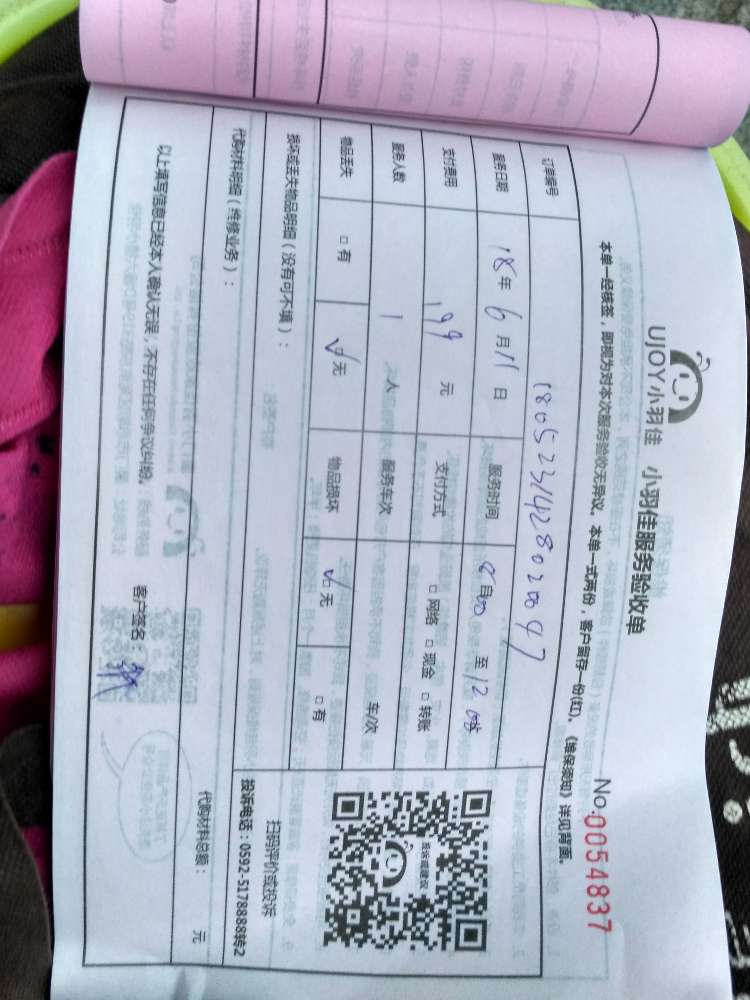 UJOY小羽佳 小羽佳服务验收单
No:0054837
本单一经核签，即视为对本次服务验收无异议。本单一式两份，客户留存一份(红)。《维保须知》详见背面。
订单编号 1805231428020047
服务日期 18年6月11日 服务时间 8:00 至 12:00
支付费用 199 元 支付方式 □网络 □现金 □转账
服务人数 1 人 服务车次 车/次
物品丢失 □有 □无 物品损坏 □无 □有
损坏或丢失物品明细（没有可不填）：
扫码评价或投诉
投诉电话：0592-5178888转2
我诉或建议
代购材料明细（维修业务）：
代购材料总额： 元
以上填写信息已经本人确认无误，不存在任何争议纠纷。
客户签名：